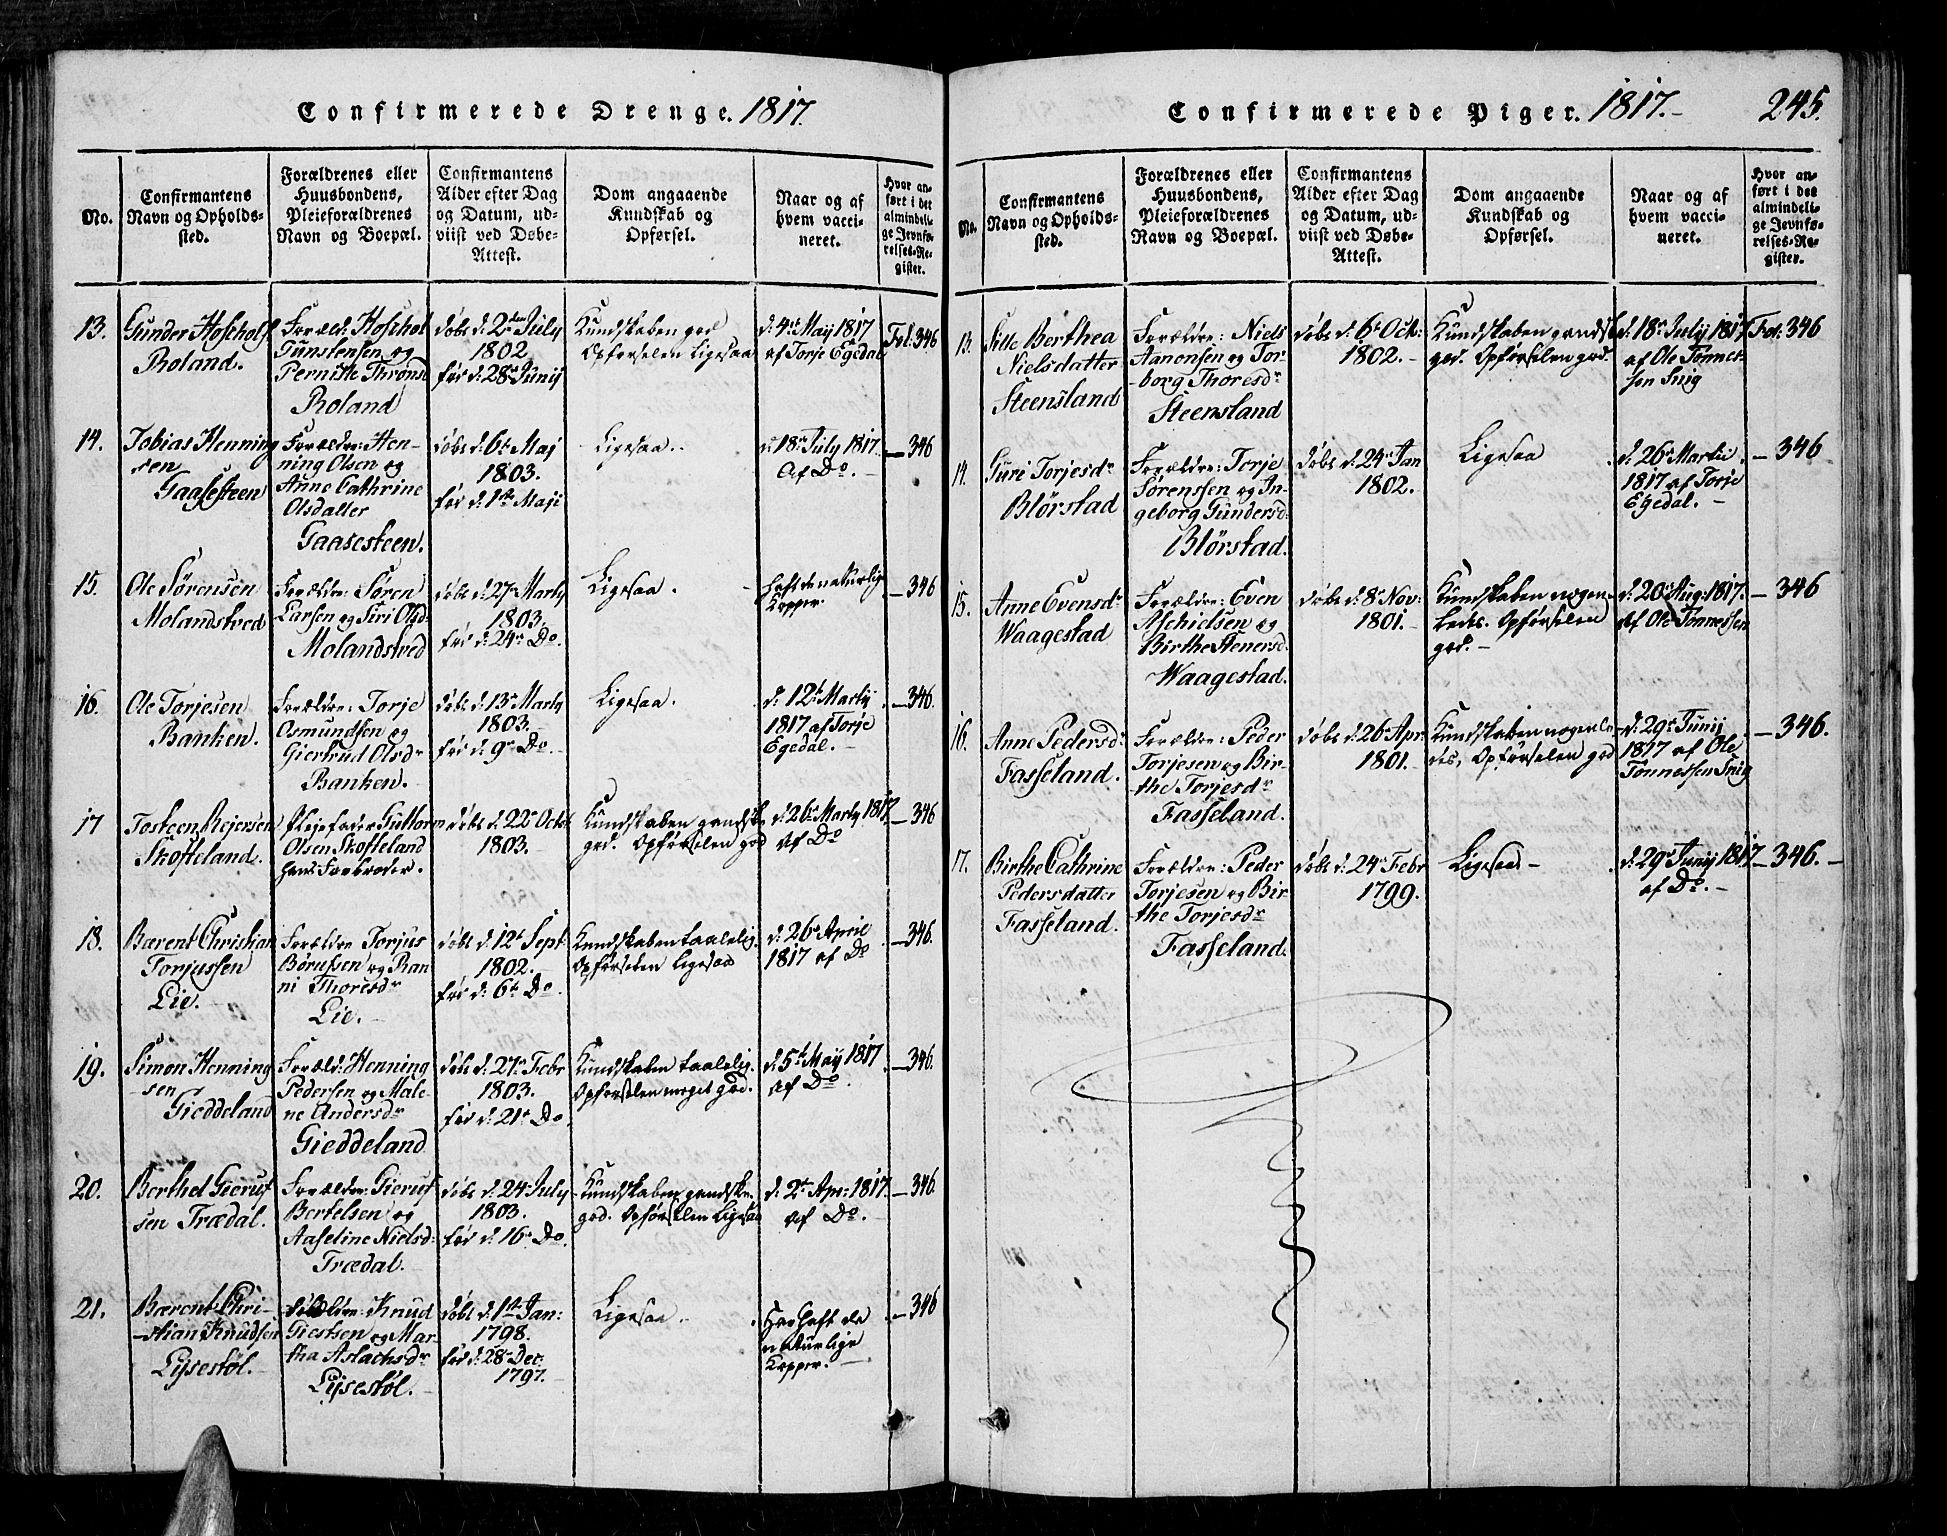 Confirmerede Drenge. 1817.
No.
Confirmantens
Navn og Opholds-
sted.
Forældrenes eller
Huusbondens,
Pleieforældrenes
Navn og Boepæl.
Confirmantens
Alder efter Dag
og Datum, ud-
viist ved Døbe-
Attest.
Dom angaaende
Kundskab og
Opførsel.
Naar og af
hvem vacci-
neret.
Hvor an-
ført i det
almindeli-
ge Jevnfø-
relses-Re-
gister.
13.
Gunder Hoschols
Roland.
Foræld: Hoschol
Gunstensen og
Pernille Thronsd
Roland
døbt d: 2den July
1802
før d: 28r Junij
Kundskaben god
Opførselen Ligesaa
d. 4de May 1817
af Torje Egedal
Fol: 346
14.
Tobias Henning
sen
Gaasesteen
Forældre: Hen-
ning Olsen og
Anne Cathrine
Olsdatter
Gaasesteen.
døbt d: 6te Maj
1803.
før d: 1te Maji
Ligesaa.
d 18r July 1817.
Af Do. -
- 346
15.
Ole Sørensen
Molandsved
Forældre: Søren
Larsen og Siri Olsd:
Molandsved
døbt d: 27r Marty
1803.
før d: 24r Do.
Ligesaa.
haft de naturlige
Kopper.
- 346
16.
Ole Torjesen
Banken.
Forældre: Torje
Osmundsen og
Giertrud Olsdr
Banken.
døbt d: 13r Marty
1803. -
før d: 9r Do. -
Ligesaa.
d. 12t Marty
1817 af Torje
Egedal. -
- 346.
17
Tosteen Rejersen
Skofteland.
Plejefader Guttorm
Olsen Skofteland
hans Farbroder.
døbt d: 22r Octob
1803. -
Kundskaben gandske
god. Opførselen god
d: 26r Marty 1817
af Do
- 346
18.
Bærent Christian
Torjussen
Lie. -
Forældre Torjus
Børufsen og Ran
ni Thoresdr
Lie. -
døbt d: 12t Sept.
1802. -
før d: 6t Do.
Kundskaben taalelig.
Opførselen Ligesaa
d: 26r Aprile
1817 af Do
- 346.
19.
Simon Henning
-sen
Gieddeland
Foræld: Henning
Pedersen og Male-
ne Andersdr
Gieddeland
døbt d: 27r Febr
1803.
før d: 21t Do
Kundskaben taalelig.
Opførselen meget god.
d. 5t May 1817
af Do.
- 346.
20.
Berthel Gieruf
sen Trædal.
Forældre: Gieruf
Bertelsen og
Aaseline Nielsd:
Trædal. -
døbt d: 24r July
1803.
før d: 16r Do.
Kundskaben gandske
god. Opførselen Ligesaa
d. 2t Apr: 1817.
af Do. -
- 346.
21.
Bærent Chri-
-stian Knudsen
Lysestøl. -
Forældre: Knud
Giertsen og Mar
tha Aslachsdr
Lysestøl. -
døbt d: 1te Jan:
1798.
før d: 28r Dec.
1797. -
Ligesaa. -
Har haft de
naturlige
Kopper. -
- 346
Confirmerede Piger. 1817. -
245.
No.
Confirmantens
Navn og Opholds-
sted.
Forældrenes eller
Huusbondens,
Pleieforældrenes
Navn og Boepæl.
Confirmantens
Alder efter Dag
og Datum, ud-
viist ved Døbe-
Attest.
Dom angaaende
Kundskab og
Opførsel.
Naar og af
hvem vacci-
neret.
Hvor an-
ført i det
almindeli-
ge Jevnfø-
relses-Re-
gister.
13.
Sille Berthea
Nielsdatter
Steensland
Forældre: Niels
Aanonsen og Tor-
-borg Thoresdr
Steensland
døbt d: 6t Oct:
1802. -
Kundskaben gandske
god. Opførselen god.
d. 18r July 1817
af Ole Tønnes-
sen Snig
Fol: 346
14.
Guri Torjesdr
Blørstad
Forældre: Torje
Sørenssen og In-
geborg Gundersd:
Blørstad.
døbt d: 24r Jan
1802. -
Ligesaa
d. 26r Martii
1817 af Torje
Egedal. -
- 346
15.
Anne Evensdr
Waagestad
Forældre: Even
Aschielsen og
Birthe Stenersd.
Waagestad.
døbt d: 8r Nov:
1801. -
Kundskaben nogen-
ledes. Opførselen
god. -
d. 20r Aug: 1817.
af Ole Tønnessen
- 346
16.
Anne Pedersdr
Fasseland.
Forældre: Peder
Torjesen og Bir-
the Torjesdr
Fasseland.
døbt d: 26r Apr.
1801. -
Kundskaben nogenle
des, Opførselen god
d. 29r Junij
1817 af Ole
Tønnessen Snig
- 346.
17.
Birthe Cathrine
Pedersdatter
Fasseland.
Forældre: Peder
Torjesen og Bir-
the Torjesdr
Fasseland.
døbt d: 24r Febr
1799.
Ligesaa -
d: 29r Junij 1817
af Do. -
- 346. -